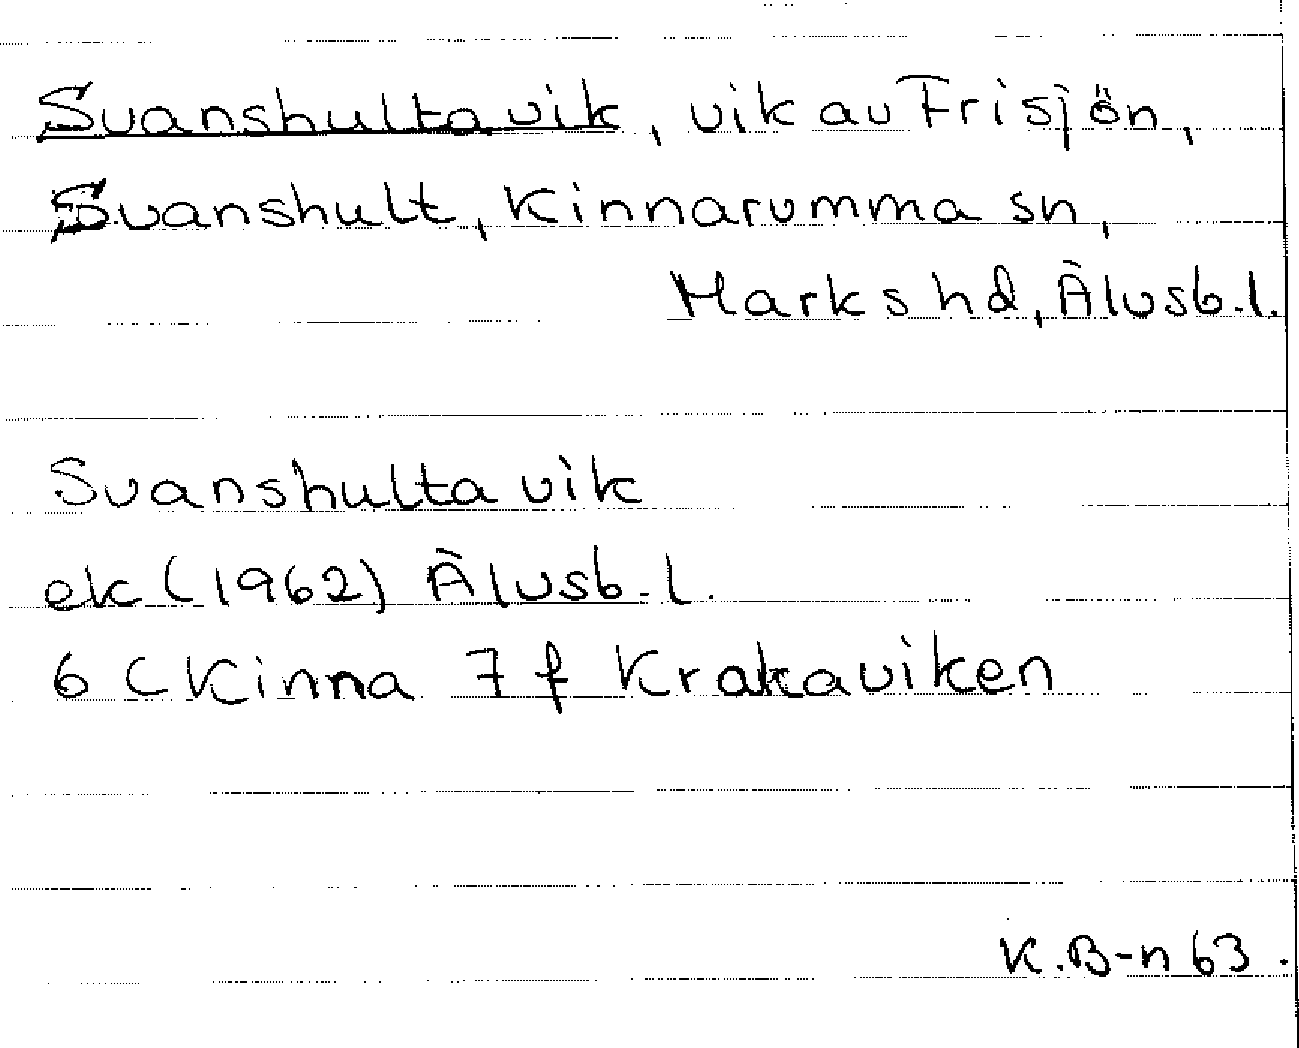 Svanshulta vik, vik av Frisjön,
Svanshult, Kinnarumma sn,
Marks hd, Älvsb.l.
Svanshulta vik
ek (1962) Älvsb.l.
6 C Kinna 7 f Krakaviken
K.B-n 63.